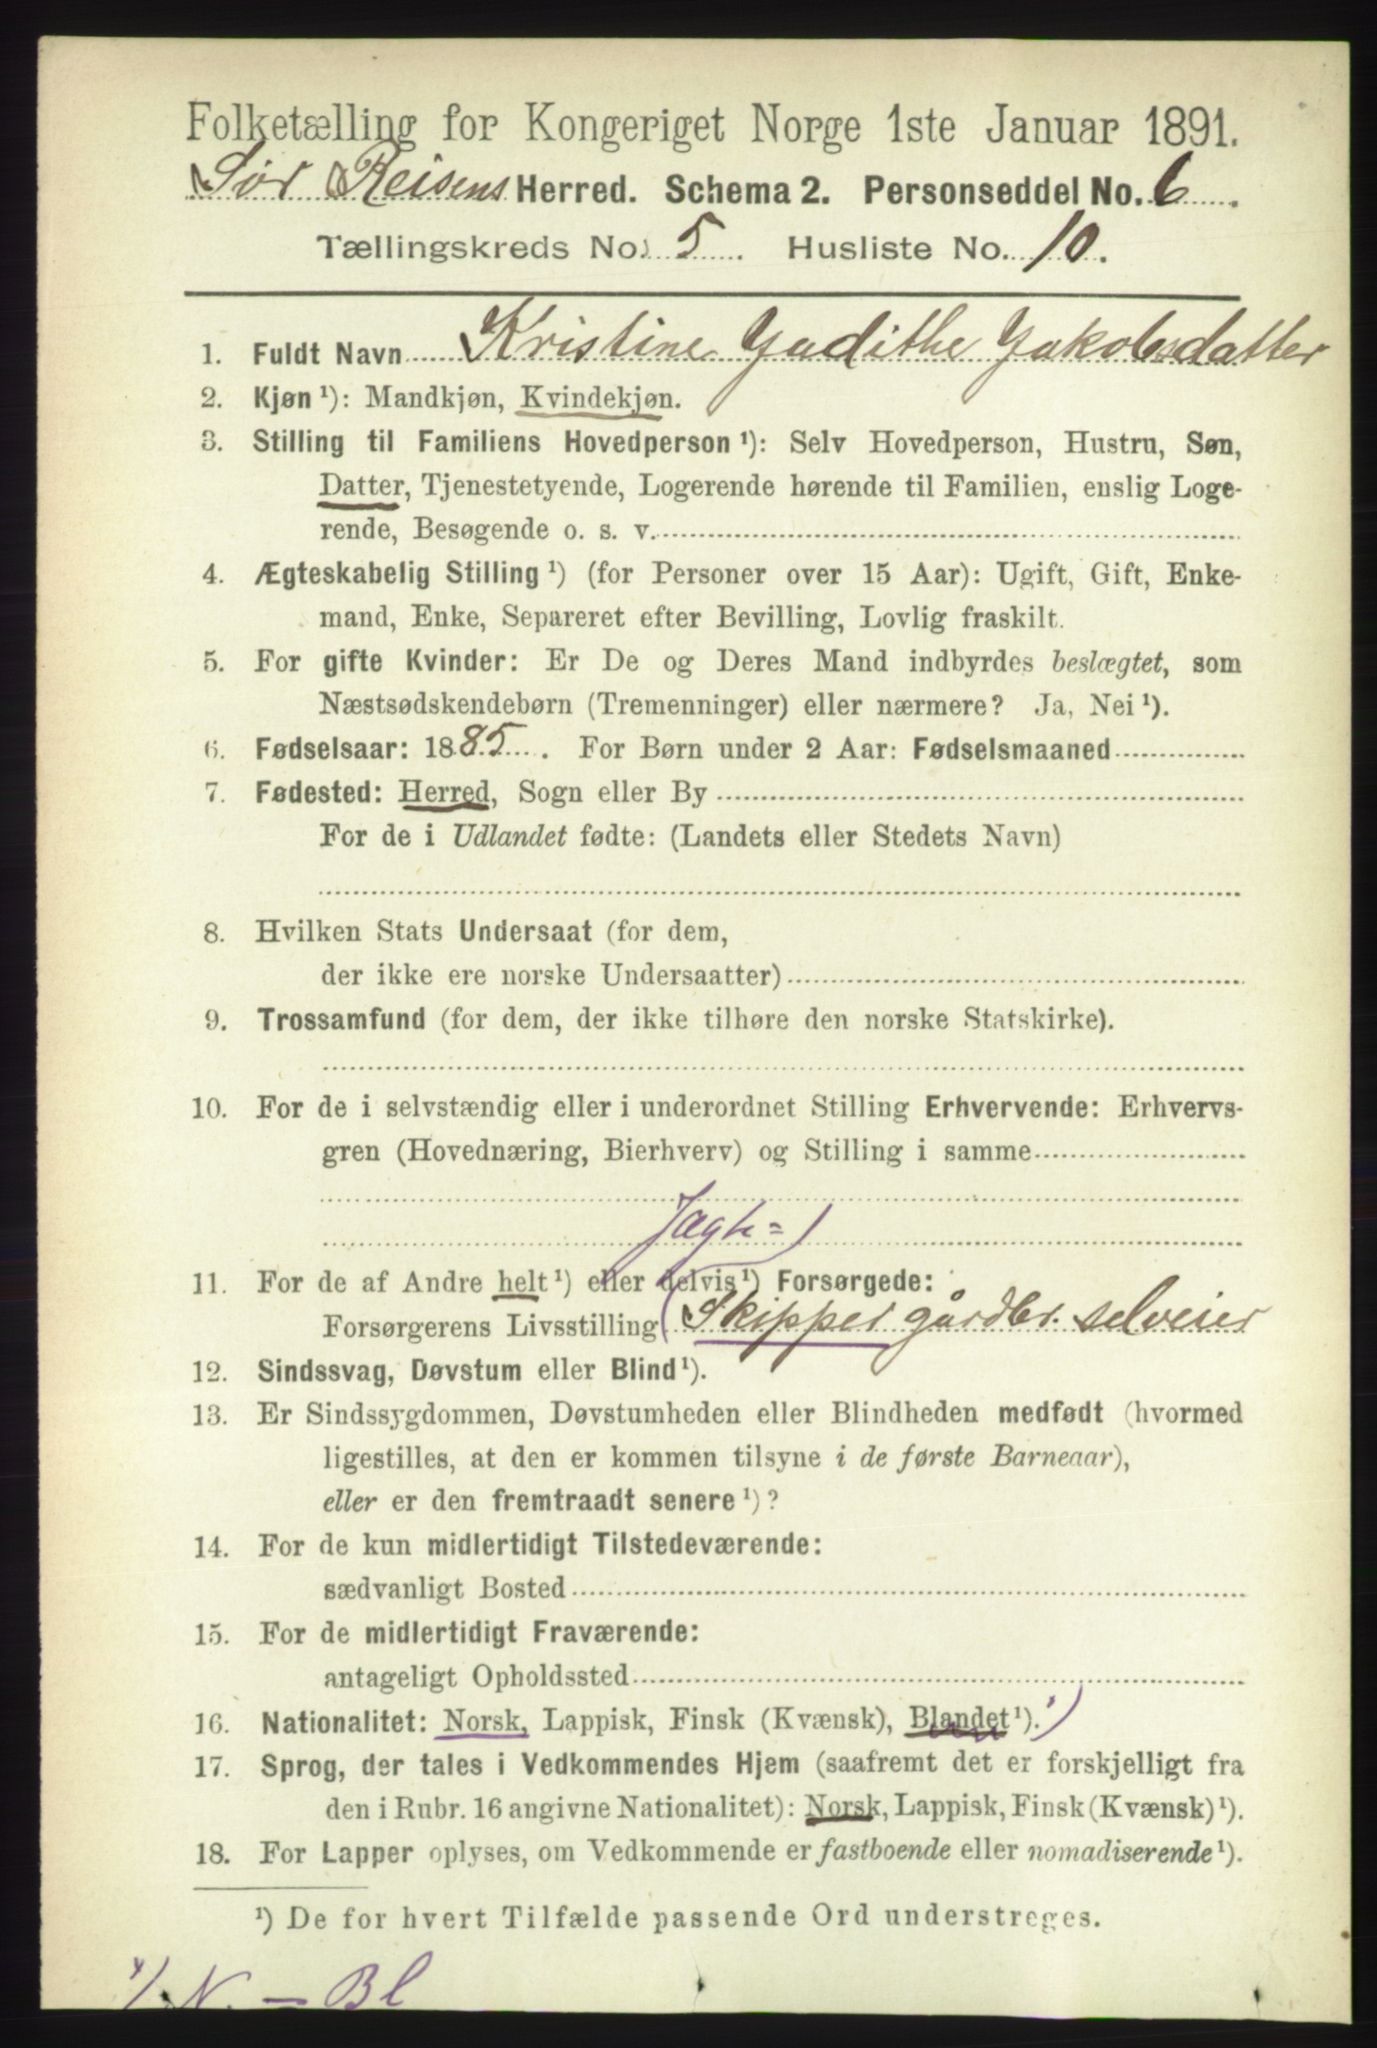 Folketælling for Kongeriget Norge 1ste Januar 1891.
Sør Reisens Herred. Schema 2. Personseddel No. 6.
Tællingskreds No. 5. Husliste No. 10.
1. Fuldt Navn Kristine Judithe Jakobsdatter
2. Kjøn ¹): Mandkjøn, Kvindekjøn.
3. Stilling til Familiens Hovedperson ¹): Selv Hovedperson, Hustru, Søn,
Datter, Tjenestetyende, Logerende hørende til Familien, enslig Loge-
rende, Besøgende o. s. v.
4. Ægteskabelig Stilling ¹) (for Personer over 15 Aar): Ugift, Gift, Enke-
mand, Enke, Separeret efter Bevilling, Lovlig fraskilt.
5. For gifte Kvinder: Er De og Deres Mand indbyrdes beslægtet, som
Næstsødskendebørn (Tremenninger) eller nærmere? Ja, Nei ¹).
6. Fødselsaar: 1885. For Børn under 2 Aar: Fødselsmaaned
7. Fødested: Herred, Sogn eller By
For de i Udlandet fødte: (Landets eller Stedets Navn)
8. Hvilken Stats Undersaat (for dem,
der ikke ere norske Undersaatter)
9. Trossamfund (for dem, der ikke tilhøre den norske Statskirke).
10. For de i selvstændig eller i underordnet Stilling Erhvervende: Erhvervs-
gren (Hovednæring, Bierhverv) og Stilling i samme
Jagt=)
11. For de af Andre helt ¹) eller delvis ¹) Forsørgede:
Forsørgerens Livsstilling (Skipper gårdbr. selveier
12. Sindssvag, Døvstum eller Blind ¹).
13. Er Sindssygdommen, Døvstumheden eller Blindheden medfødt (hvormed
ligestilles, at den er kommen tilsyne i de første Barneaar),
eller er den fremtraadt senere ¹)?
14. For de kun midlertidigt Tilstedeværende:
sædvanligt Bosted
15. For de midlertidigt Fraværende:
antageligt Opholdssted
16. Nationalitet: Norsk, Lappisk, Finsk (Kvænsk), Blandet ¹). ¹)
17. Sprog, der tales i Vedkommendes Hjem (saafremt det er forskjelligt fra
den i Rubr. 16 angivne Nationalitet): Norsk, Lappisk, Finsk (Kvænsk) ¹).
18. For Lapper oplyses, om Vedkommende er fastboende eller nomadiserende ¹).
¹) De for hvert Tilfælde passende Ord understreges.
¹/ N. — Bl